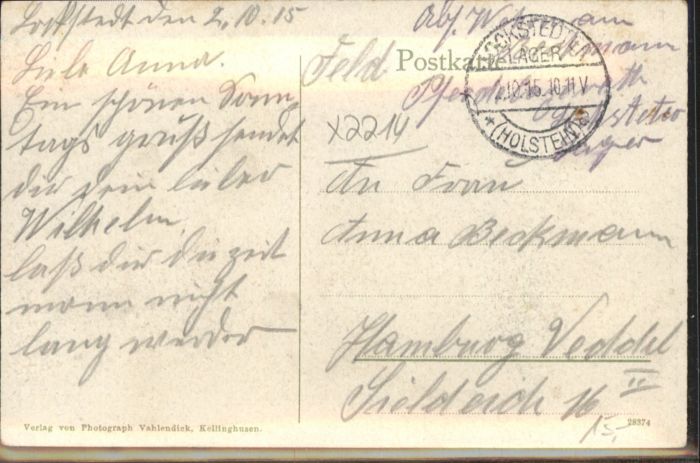 Lockstedt den 2.10.15
Liebe Anna.
Ein schönen Sonn
tags gruß sendet
dir dein lieber
Wilhelm,
laß dir die zeit
mann nicht
lang werden
Verlag von Photograph Vahlendick, Kellinghusen.
Abs. W.
Feld Postkarte
Beckmann
LOCKSTEDTER
LAGER
2.10.15.10-11V
* (HOLSTEIN) *
Lager
X2214
An Frau
Anna Beckmann
Hamburg Veddel
Sieldeich 16 II
28374
15,-